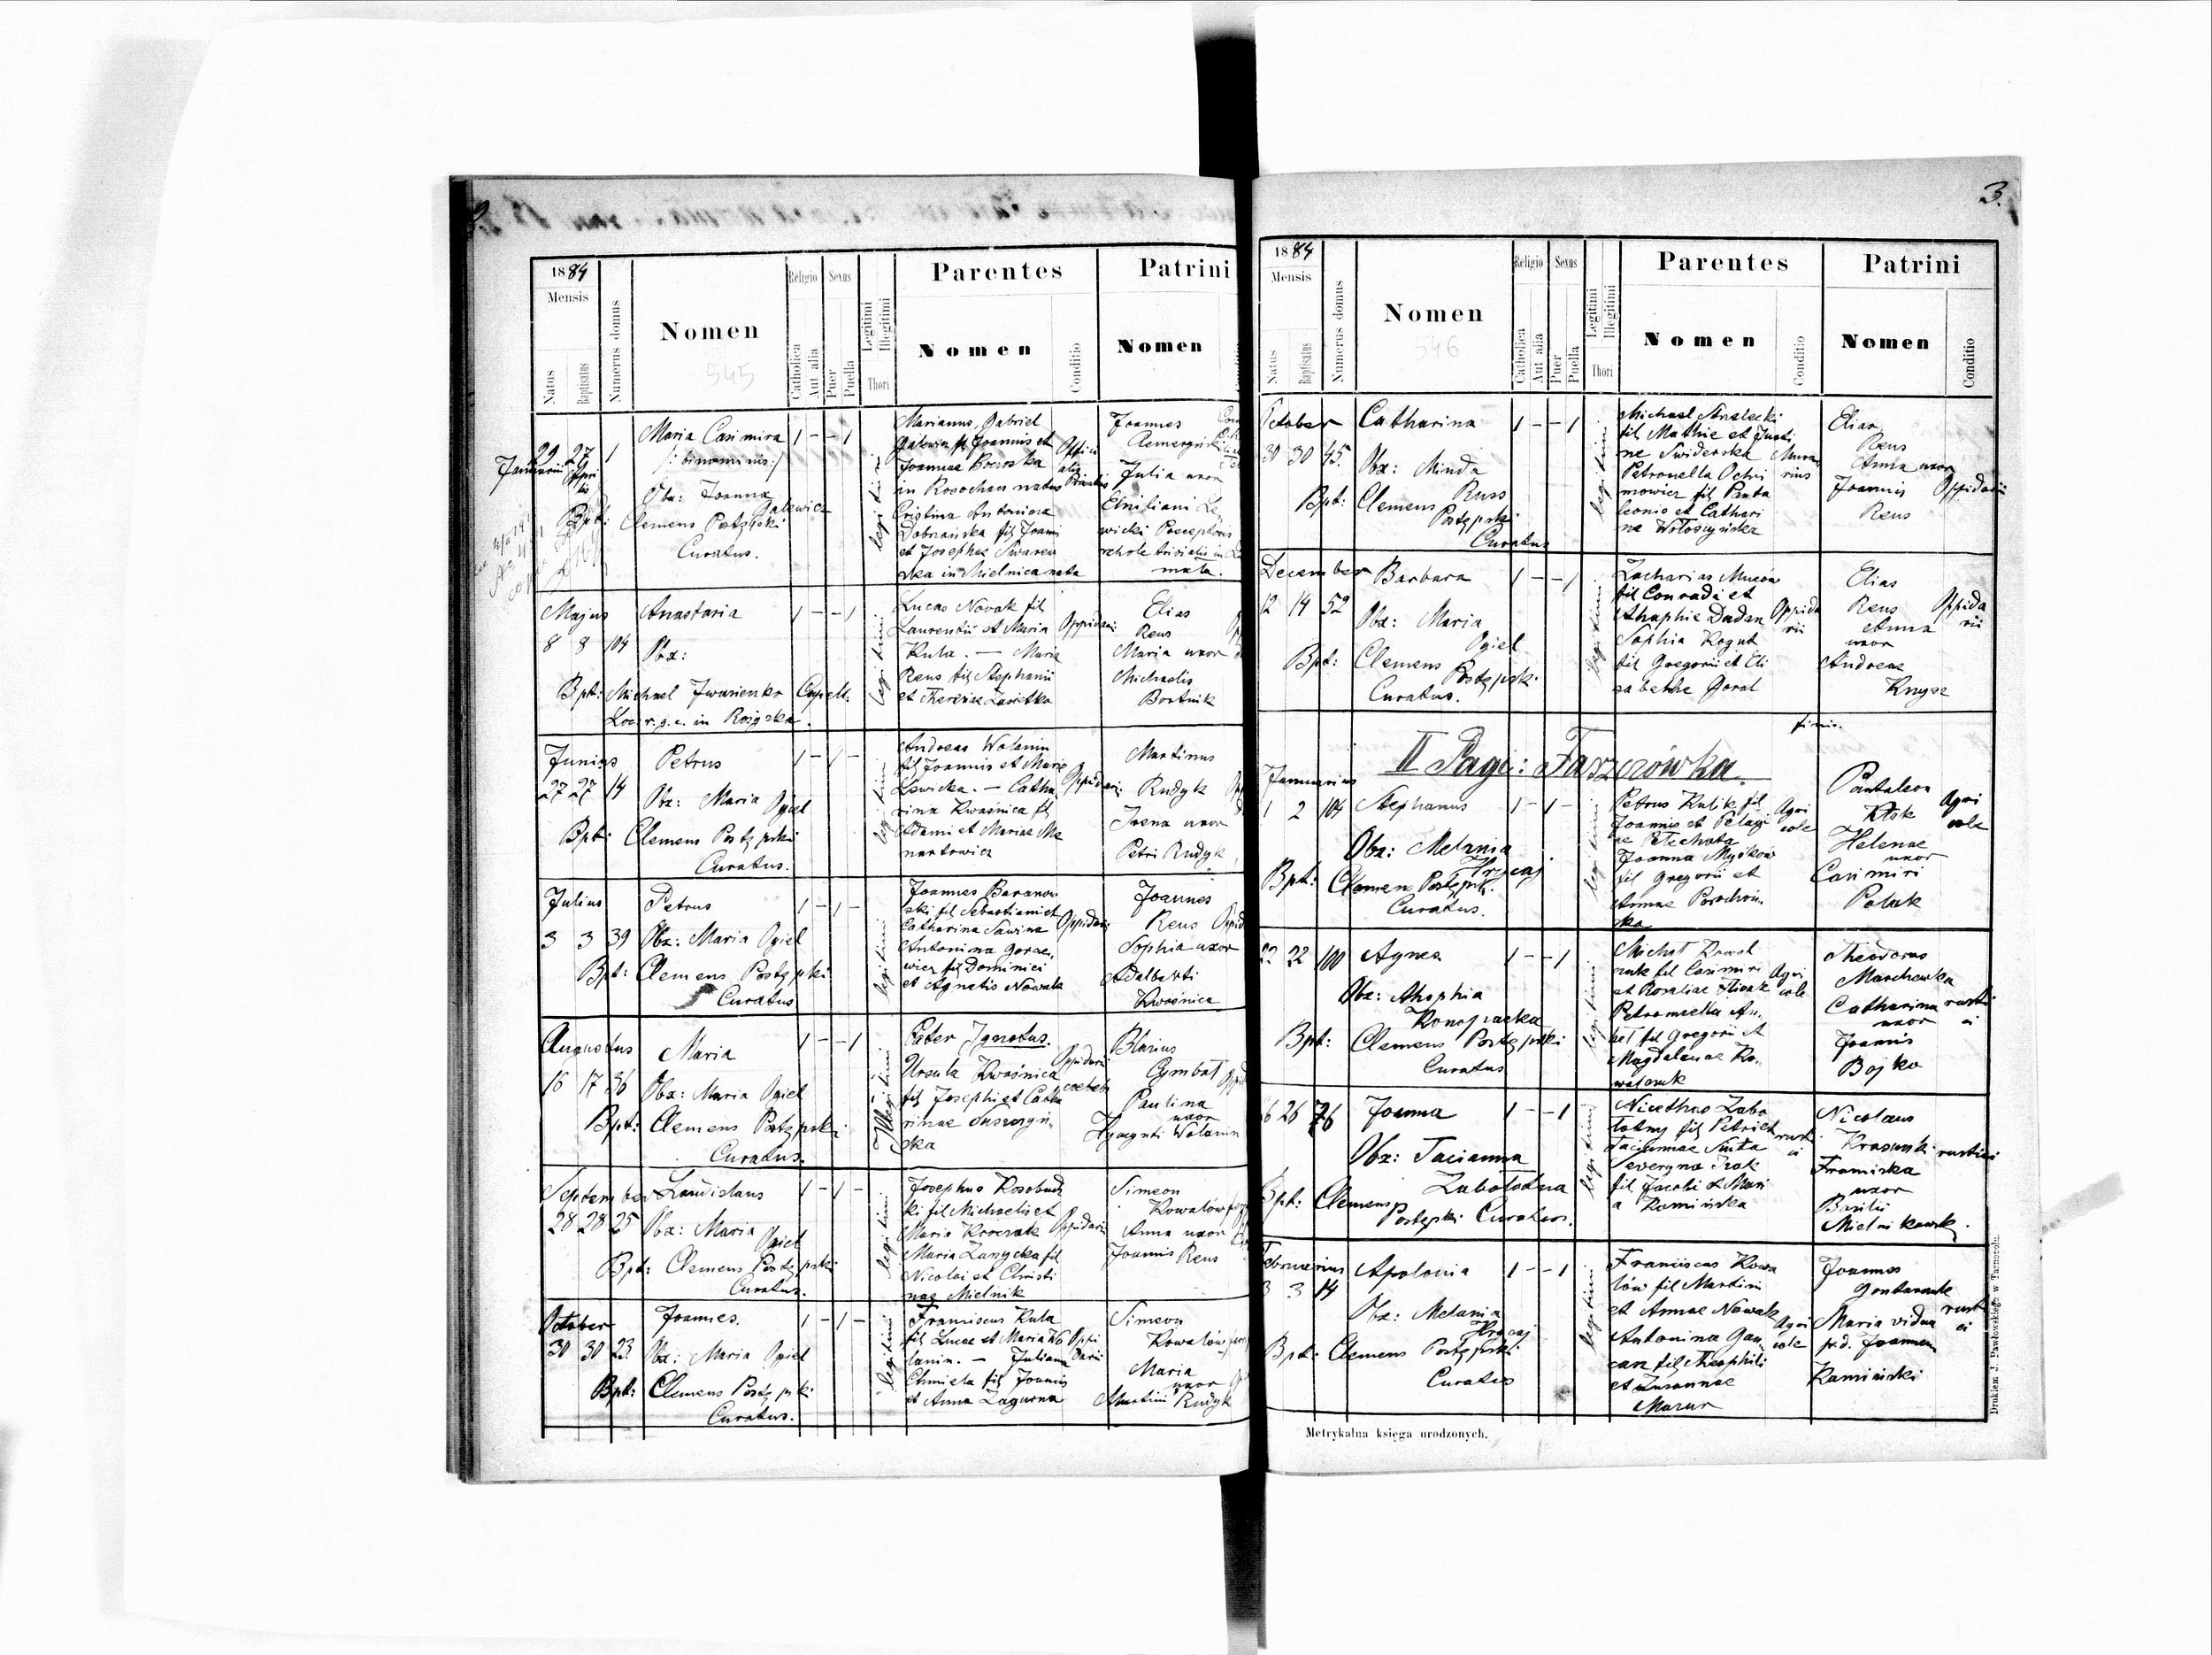 1884
Mensis
Natus
Baptisatus
Numerus domus
Nomen
545
Religio
Catholica
Aut alia
Sexus
Puer
Puella
Legitimi
Illegitimi
Thori
Parentes
Nomen
Conditio
Patrini
Nomen
29 27 1
Januarii Aprilis
Maria Casimira
/: binominis :/
Obx: Joanna
Galewicz
Bpt: Clemens Postępski
Curatus.
1 - - 1
legitimi
Marianus, Gabriel
Galewicz fil Joannis et
Joannae Boroska
in Rosochacz natus
Cristina Antonina
Dobrzańska fil Joannis
et Josephae
in Mielnica nata
Joannes
Julia uxor
Emiliani
wicki Preceptoris
schole trivialis in
mata.
Majus
8 8 104
Anastasia
Obx:
Bpt: Michael Iwasienko Capell.
Loc. r. g. c. in
1 - - 1
legitimi
Lucas Novak fil
Laurentii et Maria
Kula. — Maria
Reus fil Stephanii
et Theresiae
Oppidarii
Elias
Reus
Maria uxor
Michaelis
Bortnik
Junius
27 27 14
Petrus
Obx: Maria Ogiel
Bpt: Clemens Postępski
Curatus.
1 - 1 -
legitimi
Andreas Wolanin
fil Joannis et Marie
Lswicka. — Catha
rina Kwaśnica fil
Adami et Mariae Ma
nastowicz
Oppidarii
Martinus
Rudyk
Irena uxor
Petri Rudyk
Julius
3 3 39
Petrus
Obx: Maria Ogiel
Bpt: Clemens Postępski
Curatus
1 - 1 -
legitimi
Joannes Baranow
ski fil Sebastiani et
Catharina Sawina
Antonina Gorae,
wicz fil Dominici
et Agnetis Nowak
Oppidarii
Joannes
Reus
Sophia uxor
Adalberti
Kwaśnica
Augustus
16 17 36
Maria
Obx: Maria Ogiel
Bpt: Clemens Postępski
Curatus.
1 - - 1
Illegitimi
Pater Ignotus.
Ursula Kwaśnica
fil Josephi et Catha
rinae
ska
Blasius
Cymbał
Paulina
uxor
Hyacynti Wolanin
September
28 28 25
Ladislaus
Obx: Maria
Ogiel
Bpt: Clemens Postępski
Curatus.
1 - 1 -
legitimi
Josephus Rosobudz
ki fil Michaelis et
Maria Kroczak
Maria Zarzycka fil
Nicolai et Christi
nae Mielnik
Oppidarii
Simeon
Kowalów
Anna uxor
Joannis Reus
October
30 30 23
Joannes.
Obx: Maria Ogiel
Bpt: Clemens Postępski
Curatus.
1 - 1 -
legitimi
Franciscus Kula
fil Lucae et Maria Wo
lanin. — Juliana
Chmiela fil Joannis
et Anna Zagurna
Oppidarii
Simeon
Kowalów
Maria
uxor
Martini Rudyk
3.
1884
Mensis
Natus
Baptisatus
Numerus domus
Nomen
546
Religio
Catholica
Aut alia
Sexus
Puer
Puella
Legitimi
Illegitimi
Thori
Parentes
Nomen
Conditio
Patrini
Nomen
Conditio
October
30 30 45.
Catharina
Obx: Minda
Russ
Bpt: Clemens
Postępski
Curatus
1 - - 1
legitimi
Michael Strzelecki
fil Mathie et Justi
ne Swiderska
Petronella Ochri
mowicz fil Panta
leonis et Cathari
na Wołoszyńska
Murarius
Elias
Reus
Anna uxor
Joannis
Reus
Oppidarii
December
12 14 52
Barbara
Obx: Maria
Ogiel
Bpt: Clemens
Postępski
Curatus.
1 - - 1
legitimi
Zacharias Mucow
fil Conradi et
Ahaphie Dudan
Sophia Kogut
fil Gregorii et Eli
sabethe Goral
Oppida
rii
Elias
Reus
Anna
uxor
Andreae
Knysz
Oppida
rii
finis.
II Pagi: Faszczówka
Januarius
1 2 104
Stephanus
Obx: Melania
Hrycaj
Bpt: Clemens Postępski.
Curatus.
1 - 1 -
legitimi
Petrus Kulik fil
Joannis et Pelagi
ae Petechata
Joanna Myśków
fil Gregorii et
Annae Porochoń,
ska
Agri
cole
Pantaleon
Helenae
uxor
Casimiri
Polak
Agri
cole
22 22 100
Agnes
Obx: Ahaphia
Konopacka
Bpt: Clemens Postępski
Curatus
1 - - 1
legitimi
Michał Kowal
czuk fil Casimiri
et Rosaliae
Petronella
fil Gregorii et
Magdalenae Ko,
walczuk
Agri
cole
Theodorus
Marchewka
Catharina
uxor
Joannis
Bojko
rusti
ci
26 26 76
Joanna
Obx: Tacianna
Zabołotna
Bpt: Clemens
Postępski Curatus.
1 - - 1
legitimi
Nicethas Zabo
łotny fil Petri et
Taciannae Smta
Severyna Irak
fil Jacobi et Mari
a Kamińska
rusti
ci
Nicolaus
Krasowski
Franciska
uxor
Basilii
Mielnikowski.
rustici
Februarius
3 3 14
Apolonia
Obx: Melania
Hrycaj
Bpt: Clemens Postępski
Curatus
1 - - 1
legitimi
Franciscus Kowa
lów fil Martini
et Annae Nowak
Antonina Gan,
carz fil Theophili
et Zusannae
Mazur
Agri
cole
Joannes
Gontaruk
Maria vidua
p.d. Joannem
Kamiński
rusti
ci
Metrykalna księga urodzonych.
Drukiem J. Pawłowskiego w Tarnopolu.